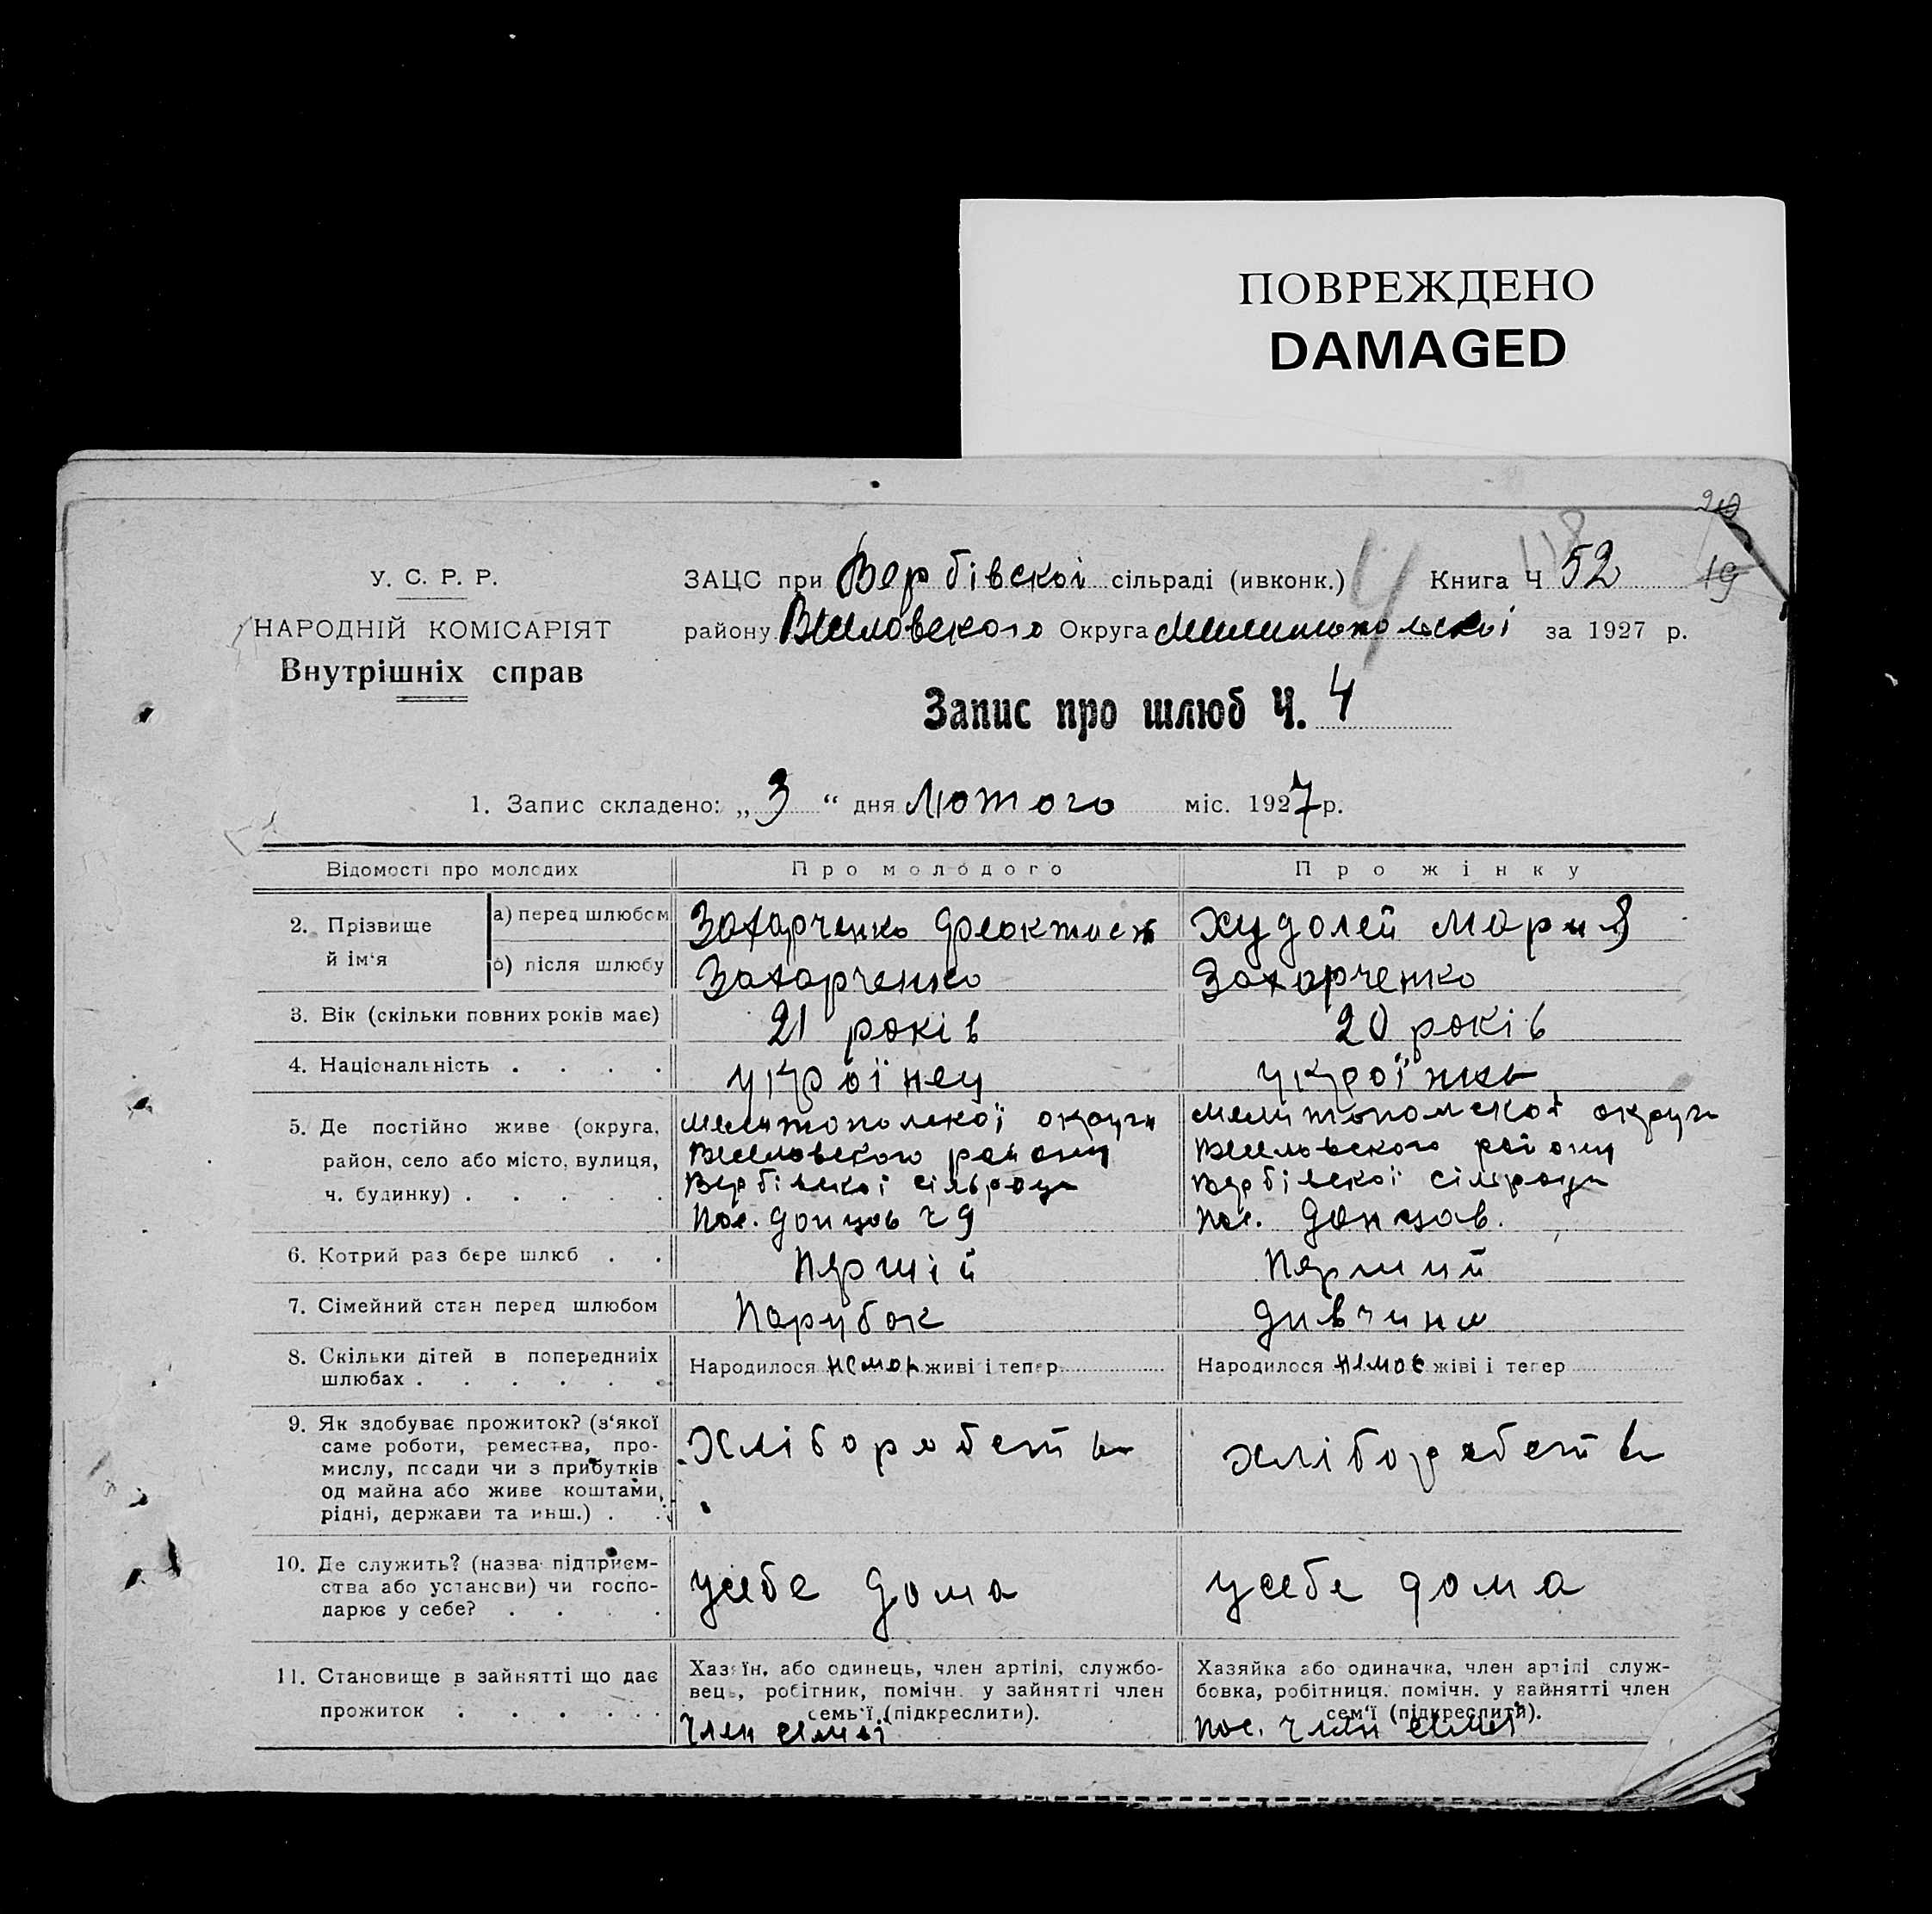 ПОВРЕЖДЕНО
DAMAGED
У. С. Р. Р.
НАРОДНІЙ КОМІСАРІЯТ
Внутрішніх справ
ЗАЦС при Вербівскої сільраді (ивконк.) Книга Ч 52 19
району Веселовского Округа Мелитопольскої за 1927 р.
4
Запис про шлюб Ч. 4
1. Запис складено: „ 3 “ дня Лютого міс. 1927 р.
Відомості про молодих Про молодого Про жінку
2. Прізвище й ім'я
а) перед шлюбом Захарченко Феоктист Худолей Мария
б) після шлюбу Захарченко Захарченко
3. Вік (скільки повних років має) 21 років 20 років
4. Національність . . . . україцец українка
5. Де постійно живе (округа, район, село або місто, вулиця, ч. будинку) . . . . .
Мелитополскої округи
Веселовского району
Вербівскої сільради
пос. Донцов ч 9
Мелитополскої округи
Веселовского району
Вербівскої сілради
пос. Донцов.
6. Котрий раз бере шлюб . . Першій Перший
7. Сімейний стан перед шлюбом Парубок Дивчина
8. Скільки дітей в попередниіх
шлюбах . . . . . .
Народилося немає живі і тепер
Народилося немає жіві і тепер
9. Як здобуває прожиток? (з'якої
саме роботи, ремества, про-
мислу, посади чи з прибутків
од майна або живе коштами,
рідні, держави та инш.) . .
Хліборобств
хліборобств
10. Де служить? (назва підприєм-
ства або установи) чи госпо-
дарює у себе? . . . .
усебе дома
усебе дома
11. Становище в зайнятті що дає
прожиток . . . . . .
Хазяїн, або одинець, член артілі, службо-
вець, робітник, помічн. у зайнятті член
семь'ї (підкреслити).
член семьі
Хазяйка або одиначка, член артілі служ-
бовка, робітниця, помічн. у зайнятті член
сем'ї (підкреслити).
пос. член семьі